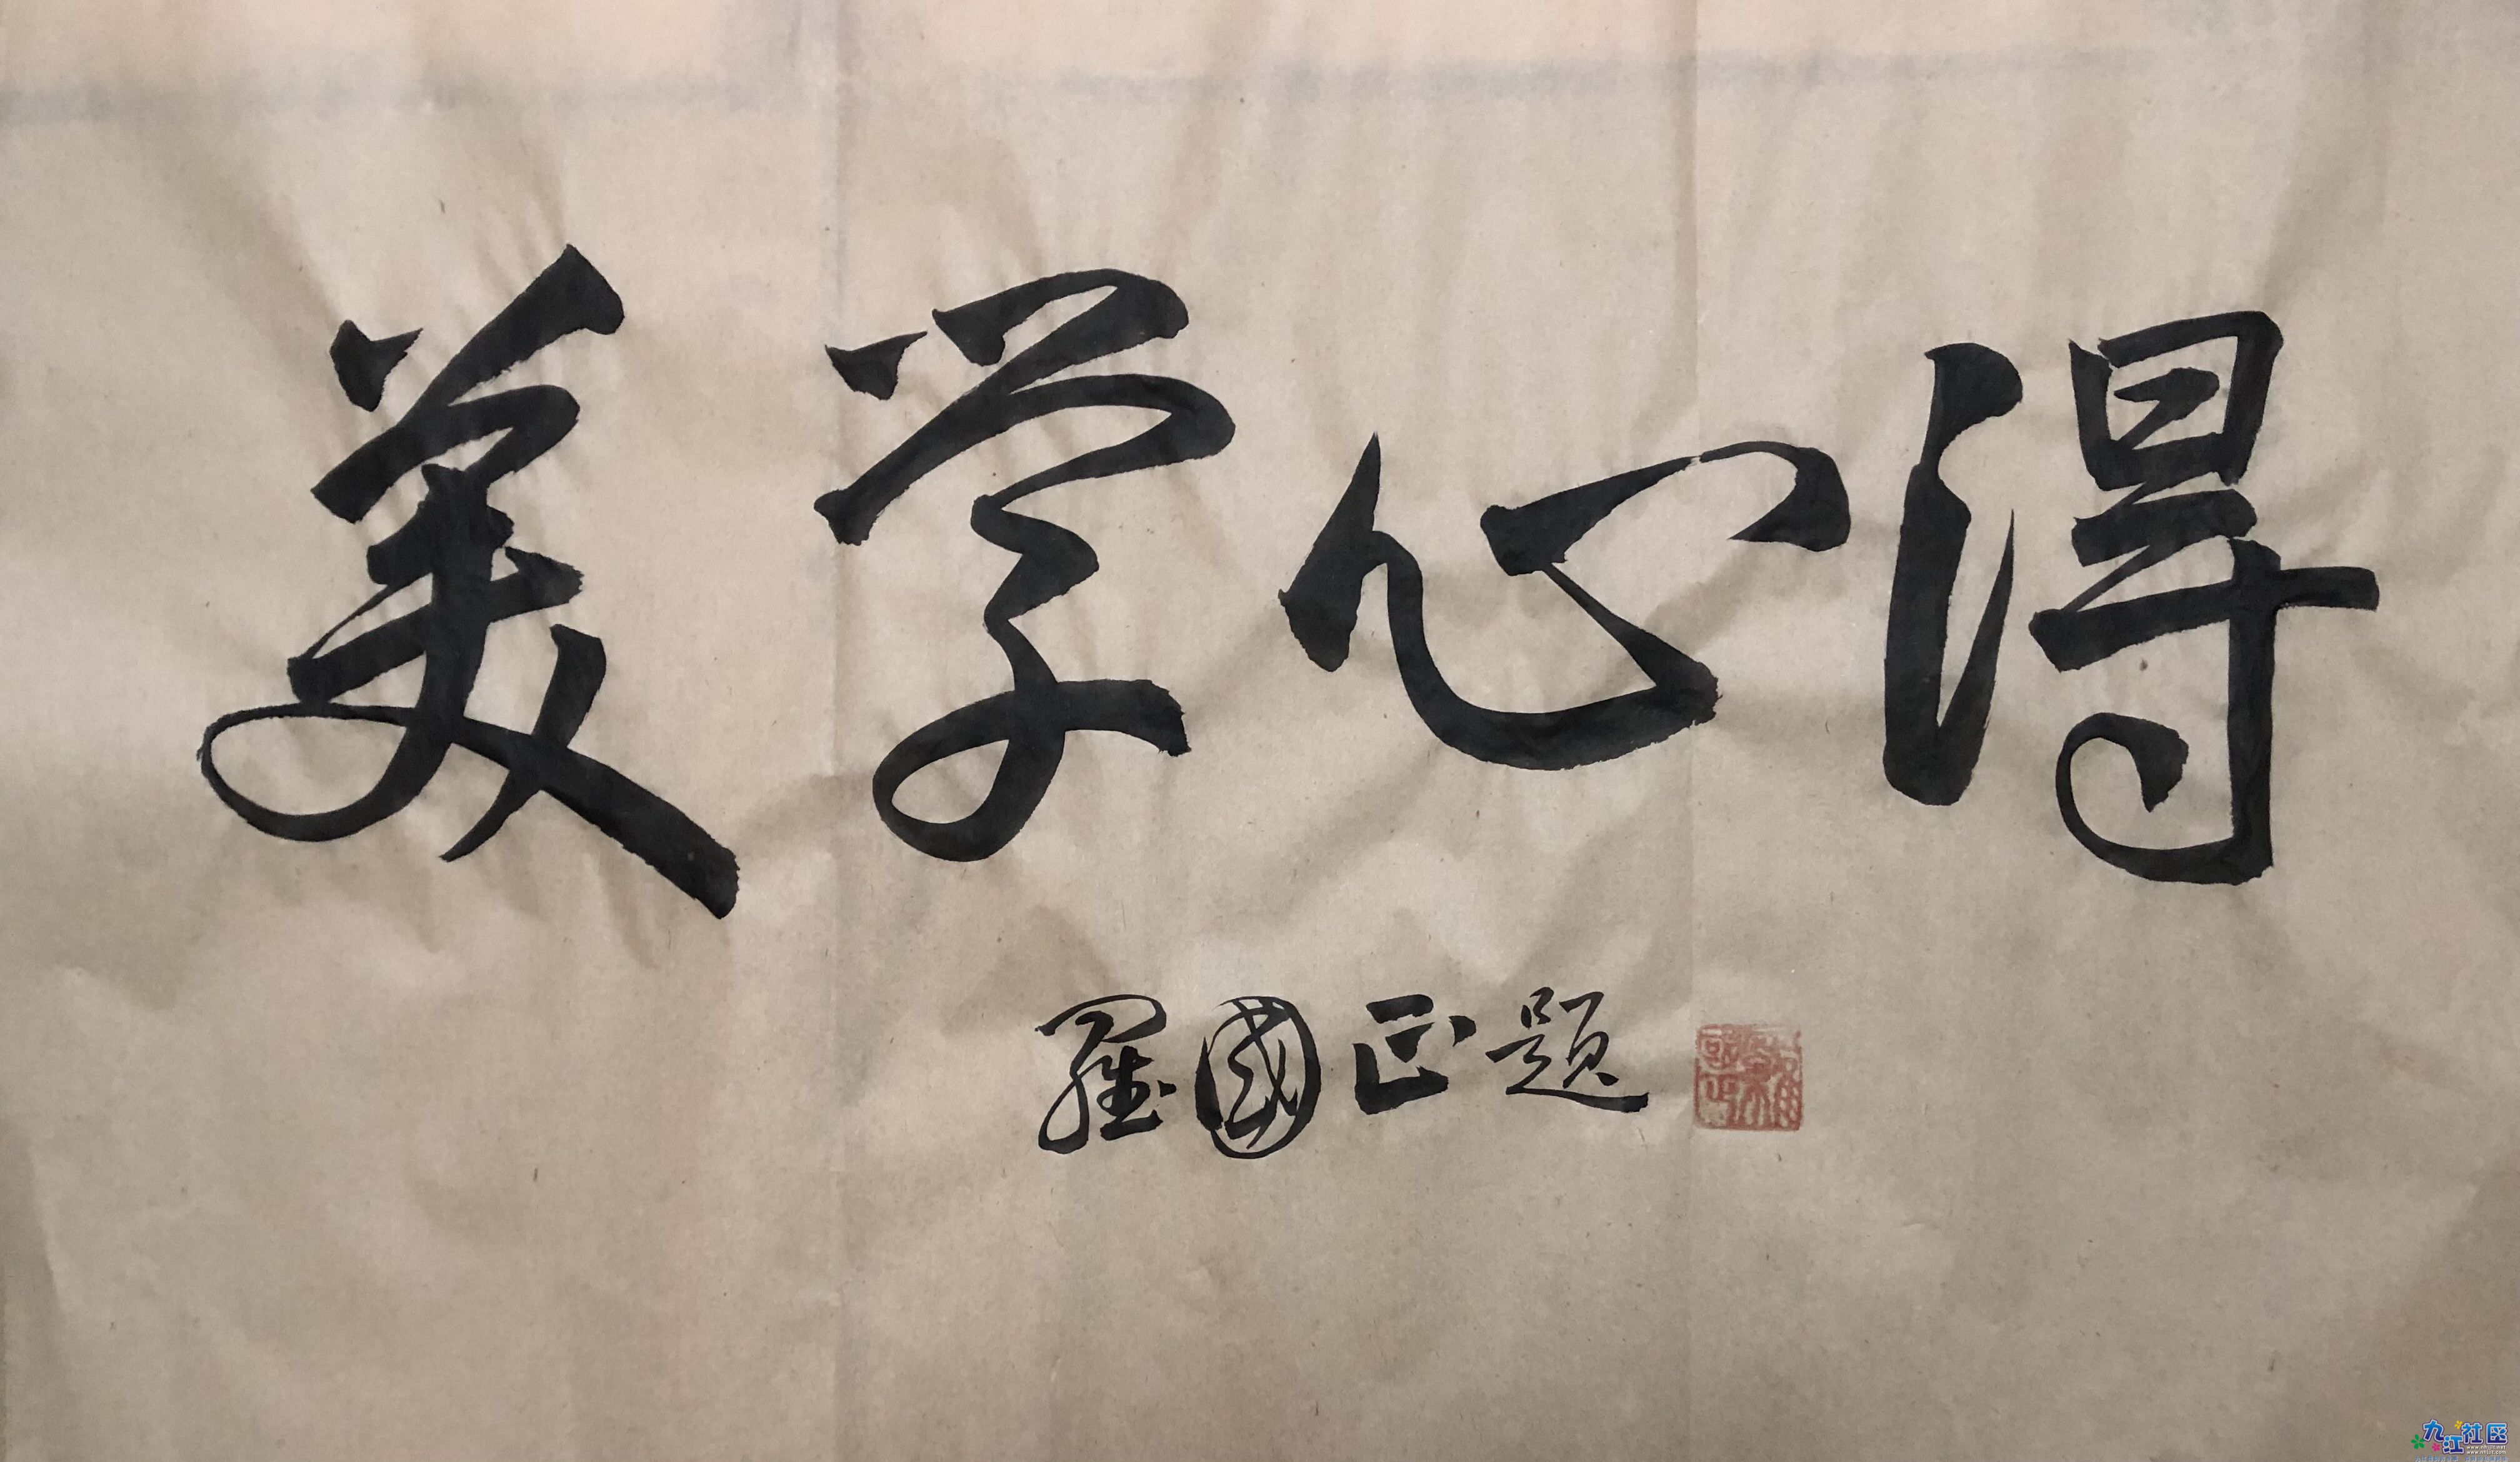 美学心得
羅國正題
九江社区